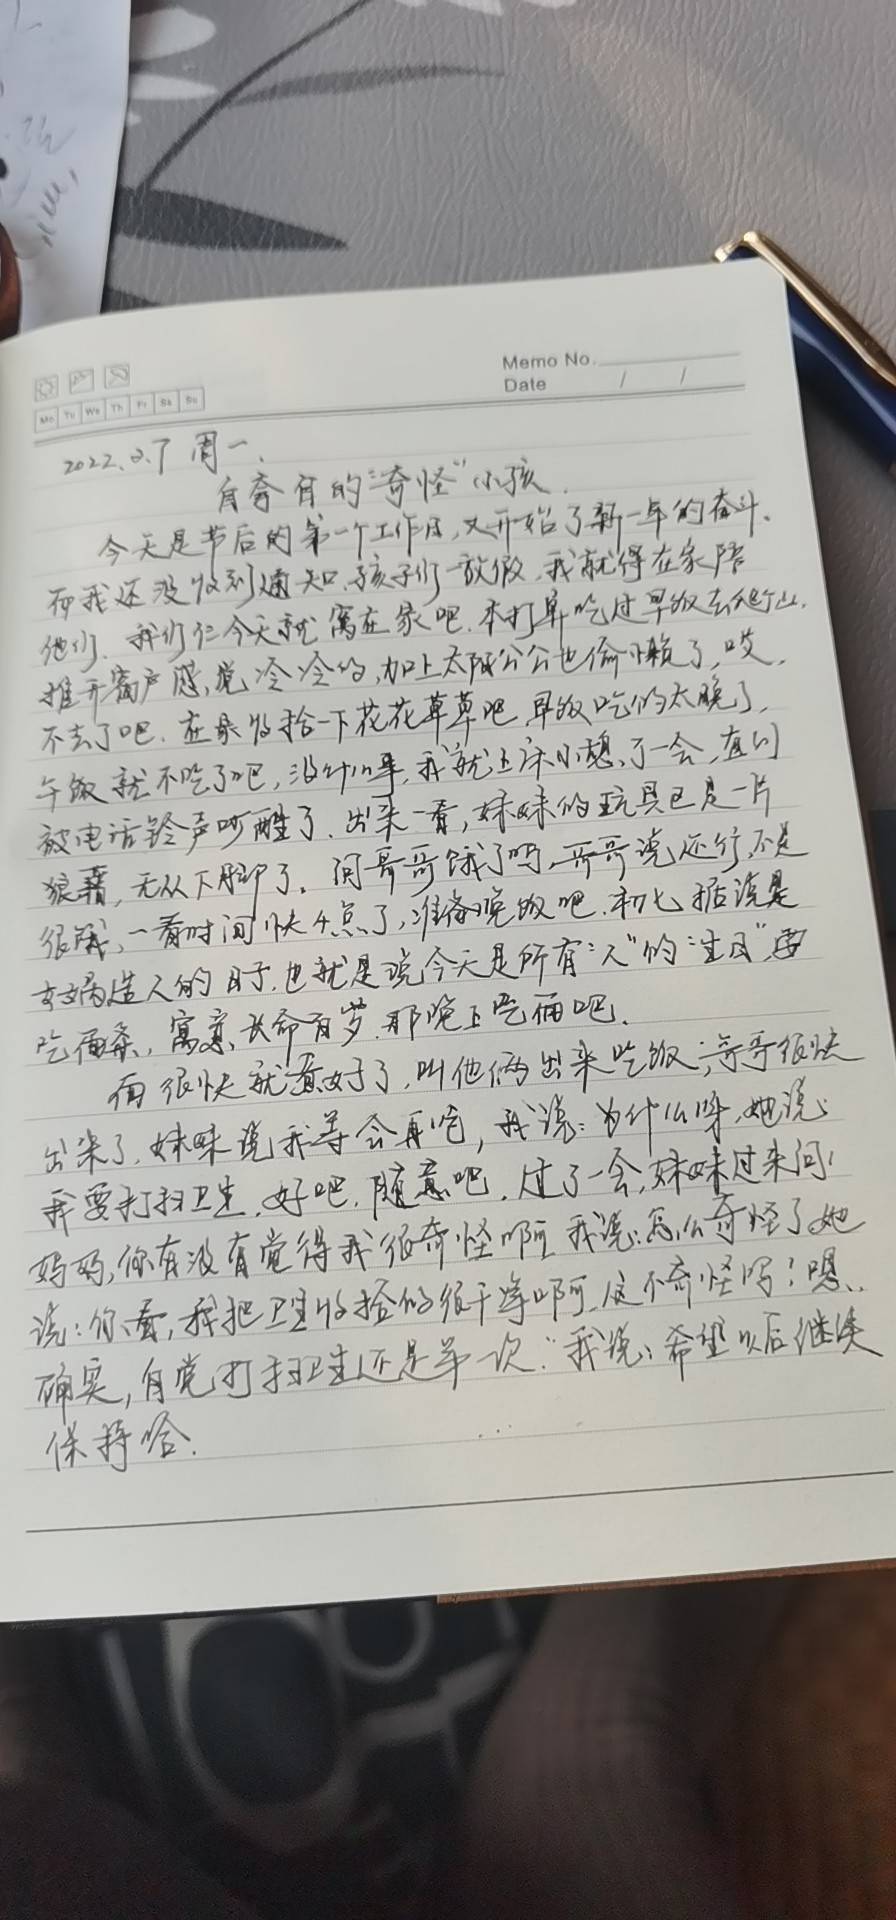 Memo No.
Date / /
Mo Tu We Th Fr Sa Su
2022.2.7 周一.
自夸自的“奇怪”小孩.
今天是节后的第一个工作日,又开始了新一年的奋斗.
而我还没收到通知.孩子们一放假,我就得在家陪
他们.我们仨今天就窝在家吧.本打算吃过早饭去爬山.
推开窗户感觉冷冷的,加上太阳公公也偷懒了,哎,
不去了吧.在家收拾一下花花草草吧.早饭吃的太晚了,
午饭就不吃了吧,没什么事,我就上床小憩了一会,直到
被电话铃声吵醒了.出来一看,妹妹的玩具已是一片
狼藉,无从下脚了.问哥哥饿了吗,哥哥说还行,不是
很饿,一看时间快4点了,准备晚饭吧.初七据说是
女娲造人的日子.也就是说今天是所有“人”的“生日”,要
吃面条,寓意长命百岁.那晚上吃面吧.
面很快就煮好了,叫他俩出来吃饭;哥哥很快
出来了.妹妹说我等会再吃,我说:为什么呀,她说:
我要打扫卫生.好吧.随意吧.过了一会,妹妹过来问:
妈妈,你有没有觉得我很奇怪啊.我说:怎么奇怪了她
说:你看,我把卫生收拾的很干净啊,这不奇怪吗?嗯.
确实,自觉打扫卫生还是第一次.“我说:希望以后继续
保持哈.